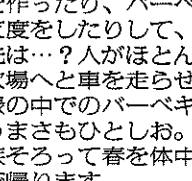 を作ったり、バーベ
度をしたりして、
は…？人がほとん
場へと車を走らせ
の中でのバーベキ
まさもひとしお。
そろって春を体中
帰ります